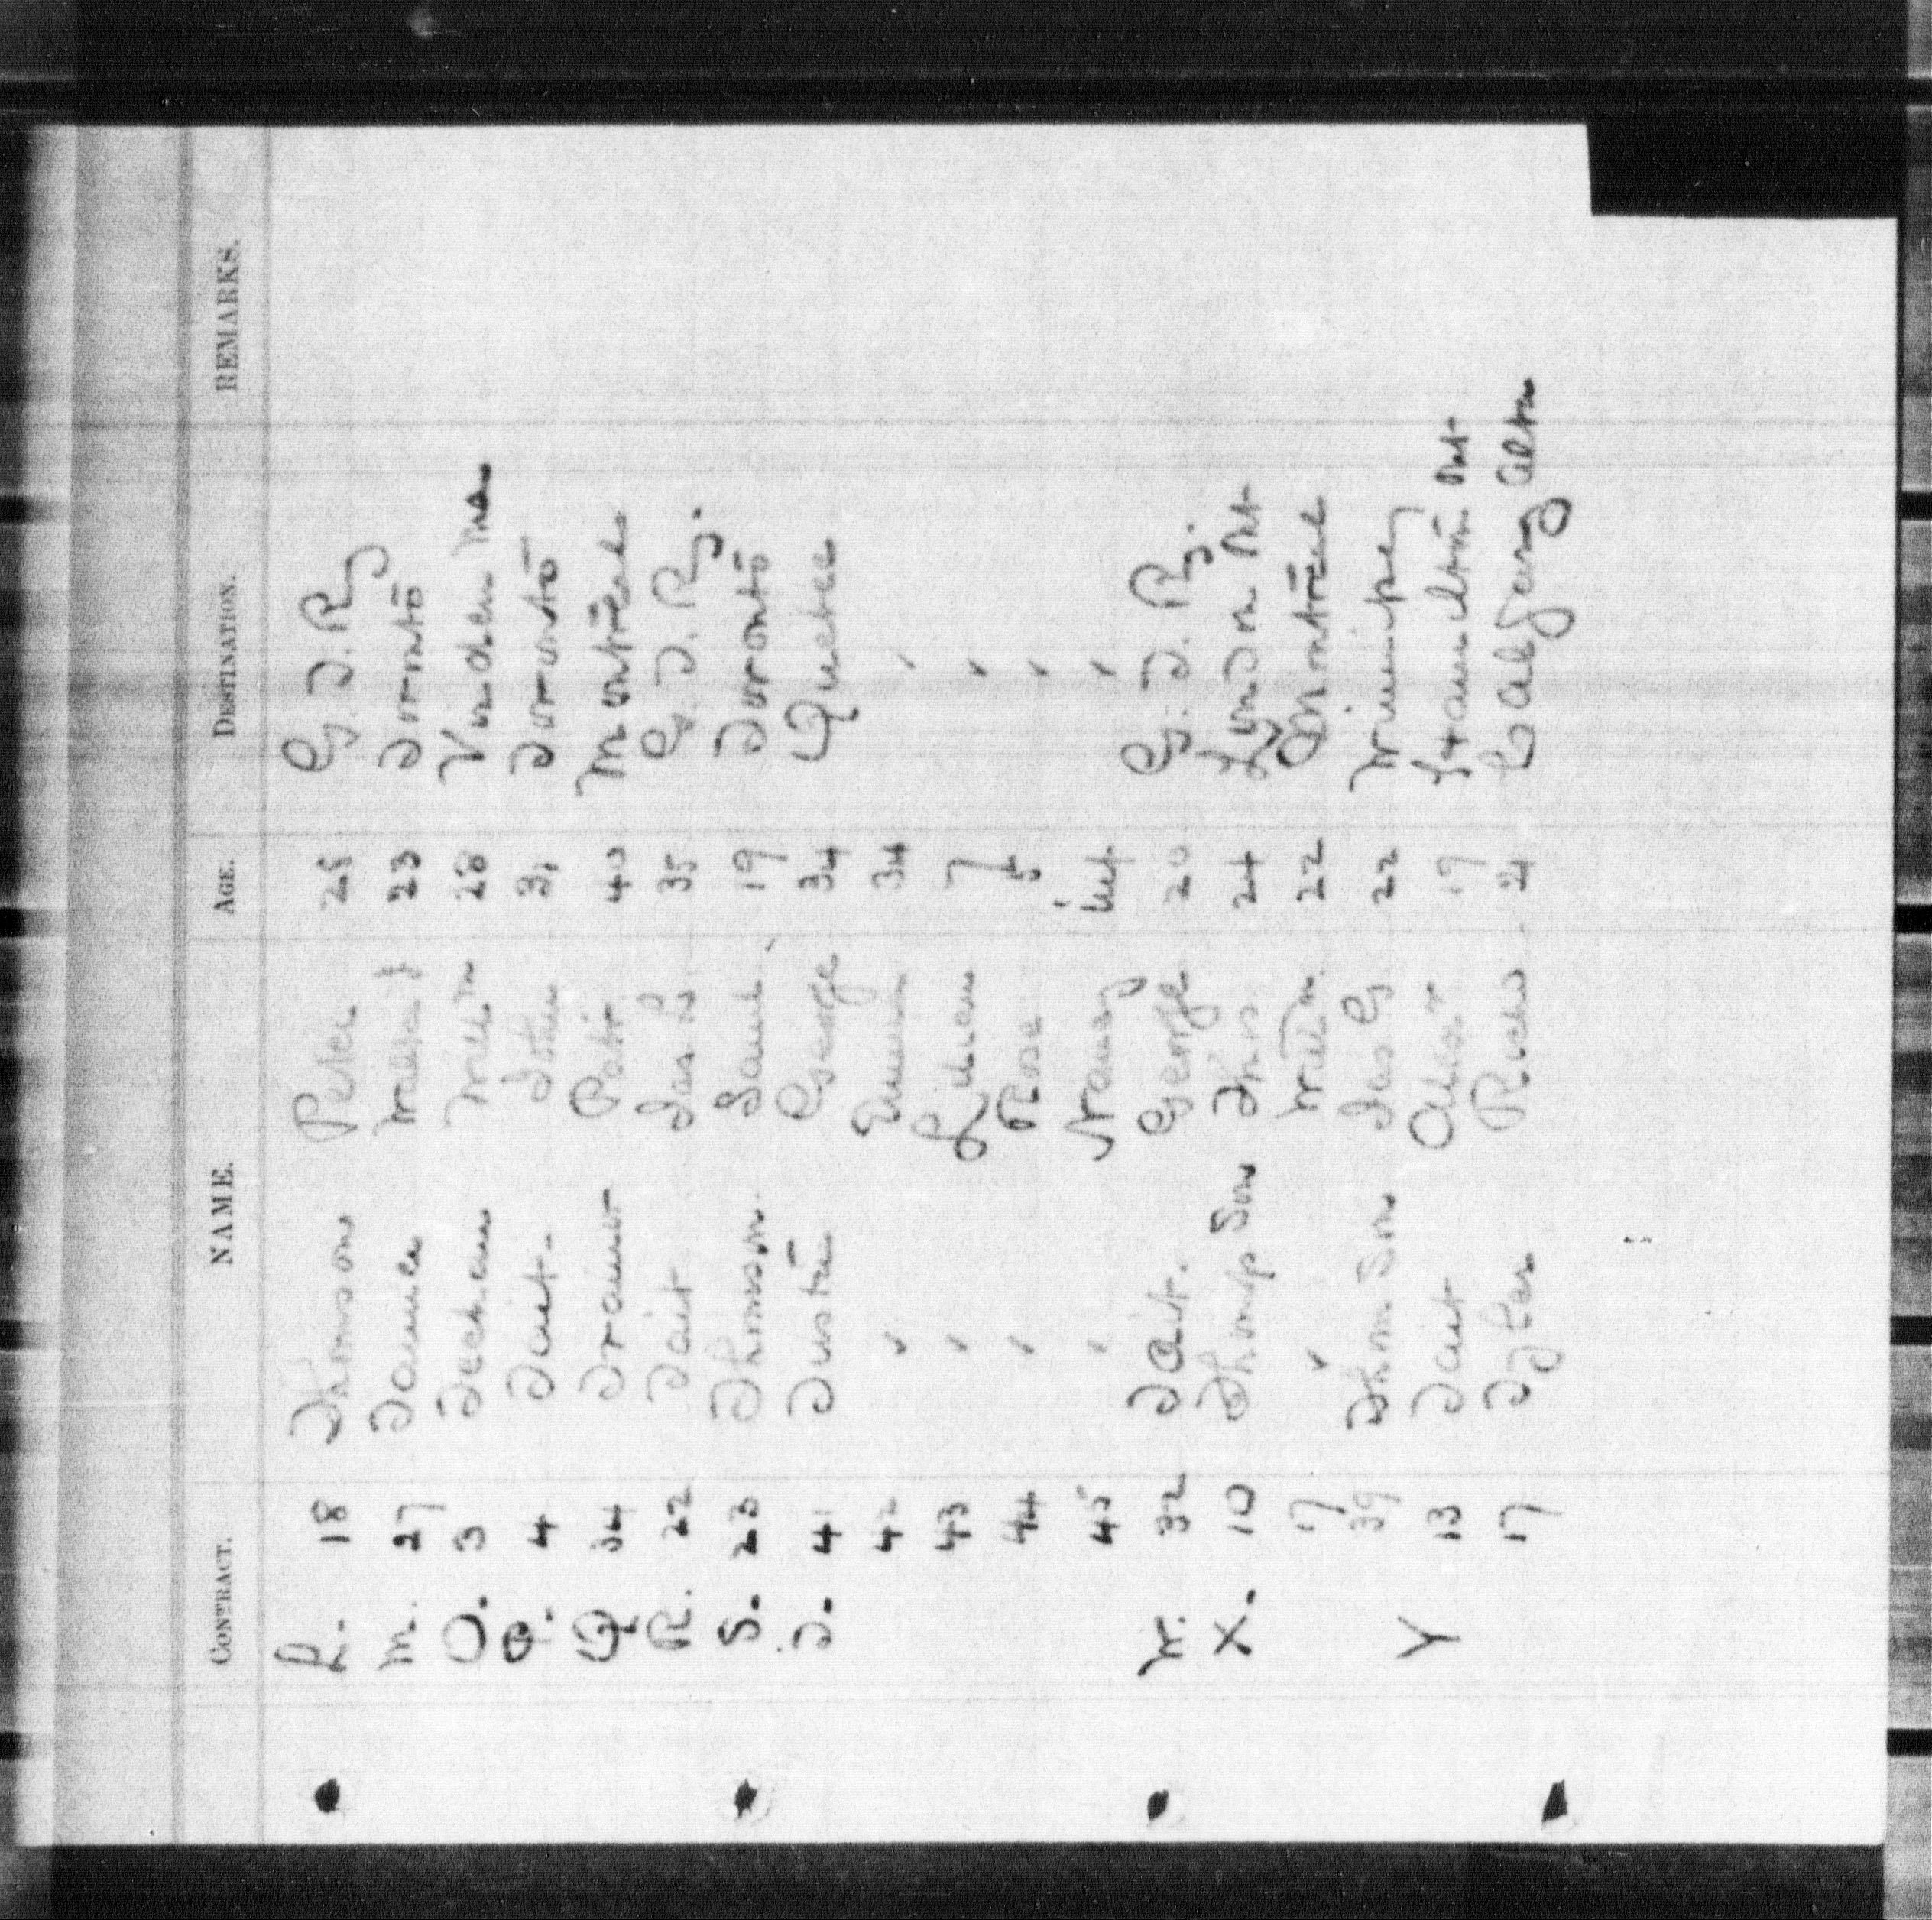 CONTRACT. NAME. AGE. DESTINATION. REMARKS.
L. 18 Thomson Peter G. T. Ry
M. 27 23 Toronto
O. 3 Will^m 28 Virden Man
P. 4 Tait. John 31 Toronto
Q 34 Trainor Patr 40 Montreal
R. 22 Tait Jas 35 G. T. Ry.
S. 23 Thomson Saml 19 Toronto
T. 41 Tustin George 34 Quebec
42 " Emma 34 "
43 " Lilian 7 "
44 " Rose 5 "
45 " Nancy inf "
W. 32 Tait. George 20 G. T. Ry.
X. 10 Thompson Thos 24 London Ont
17 " Will^m 22 Montreal
39 Thomson Jas G 22 Winnipeg
Y 13 Tait 19 Hamilton Ont
17 Tyler Richd 21 Calgary Alta